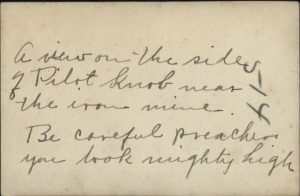 A view on the side
of Pilot Knob near
the iron mine.
Be careful preacher
you look mighty high